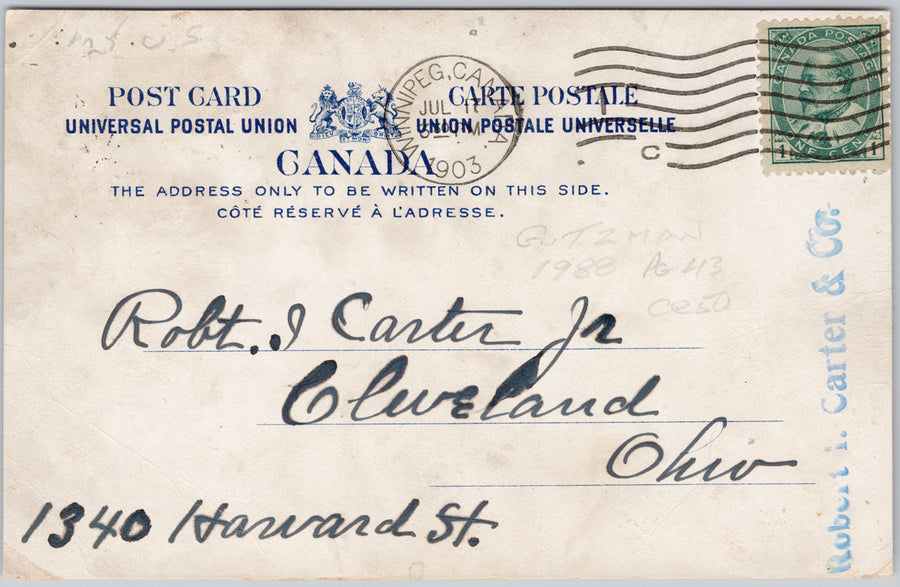 25 U.S
POST CARD CARTE POSTALE
UNIVERSAL POSTAL UNION UNION POSTALE UNIVERSELLE
CANADA
THE ADDRESS ONLY TO BE WRITTEN ON THIS SIDE.
CÔTÉ RÉSERVÉ À L'ADRESSE.
WINNIPEG, CANADA.
JUL 17
PM
1903
C
CANADA POSTAGE
ONE CENT
1 1
GUTZMAN
1988 PG 43
CC50
Robt. I Carter Jr
Cleveland
Ohio
1340 Harvard St.
Robert I. Carter & Co.